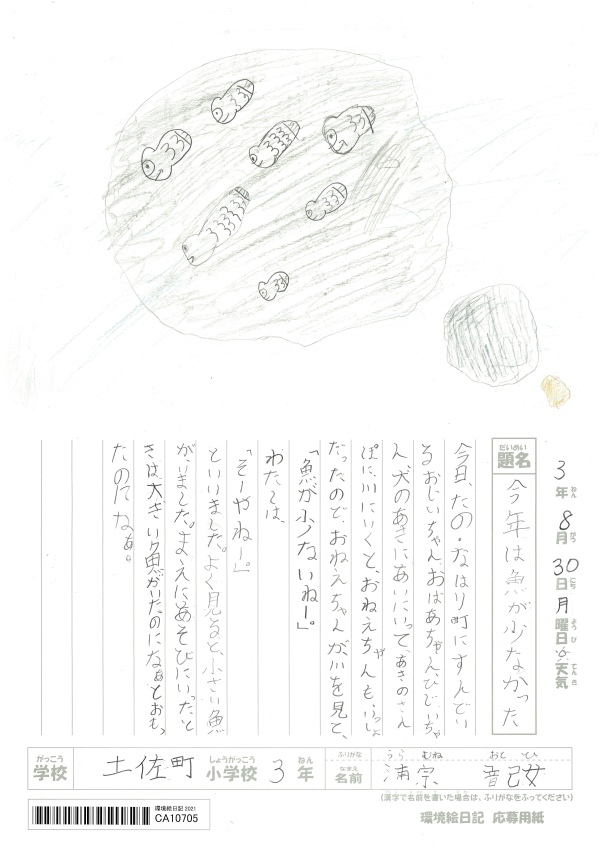 3年ねん8月がつ30日にち月曜日ようび天気てんき
題名だいめい 今年は魚が少なかった
今日、たの・なはり町にすんでい
るおじいちゃん、おばあちゃん、ひいじいちゃ
ん、犬のあきにあいにいって、あきのさん
ぽに川にいくと、おねえちゃんも、いっしょ
だったので、おねえちゃんが川を見て、
「魚が少ないねー」。
わたしは、
「そーやねー」。
といいました。よく見ると、小さい魚
がいました。まえにあそびにいったと
きは、大きい魚がいたのになぁとおも
たのになぁ。
学校がっこう 土佐町 小学校しょうがっこう 3年ねん ふりがな 名前なまえ うらむね おとひ 浦宗 音妃
(漢字で名前を書いた場合は、ふりがなをふってください)
環境絵日記 2021
CA10705
環境絵日記 応募用紙